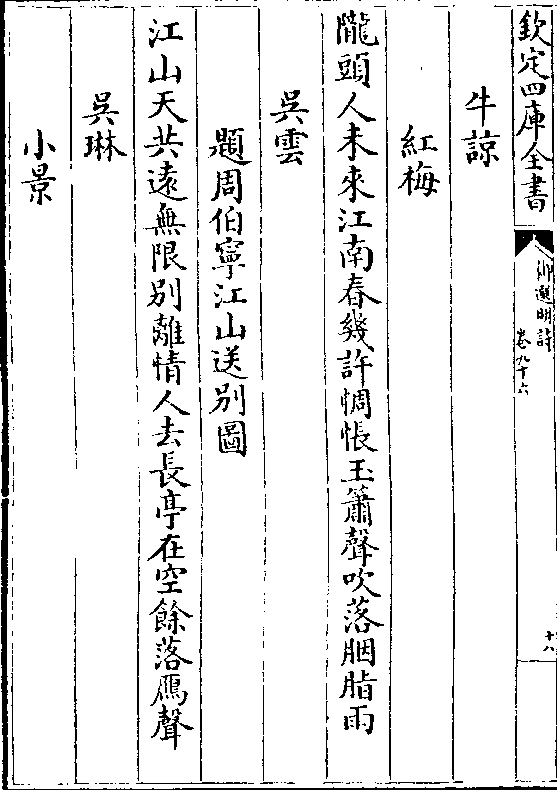 欽定四庫全書
御選明詩
卷九十六
十八
牛諒
紅梅
隴頭人未來江南春幾許惆悵玉簫聲吹落胭脂雨
吳雲
題周伯寧江山送別圖
江山天共遠無限別離情人去長亭在空餘落鴈聲
吳琳
小景